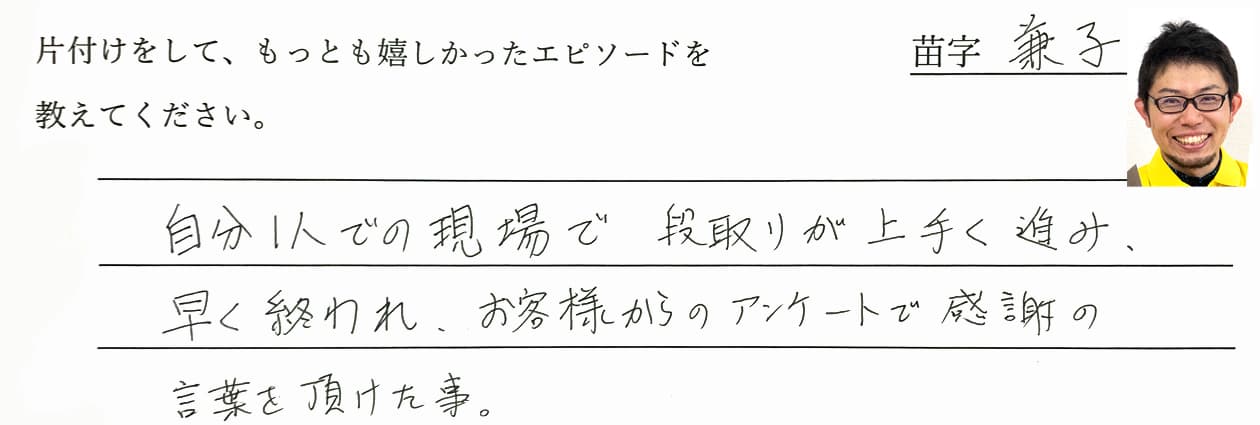 片付けをして、もっとも嬉しかったエピソードを
教えてください。
苗字 兼子
自分1人での現場で 段取りが上手く進み、
早く終われ、お客様からのアンケートで感謝の
言葉を頂けた事。